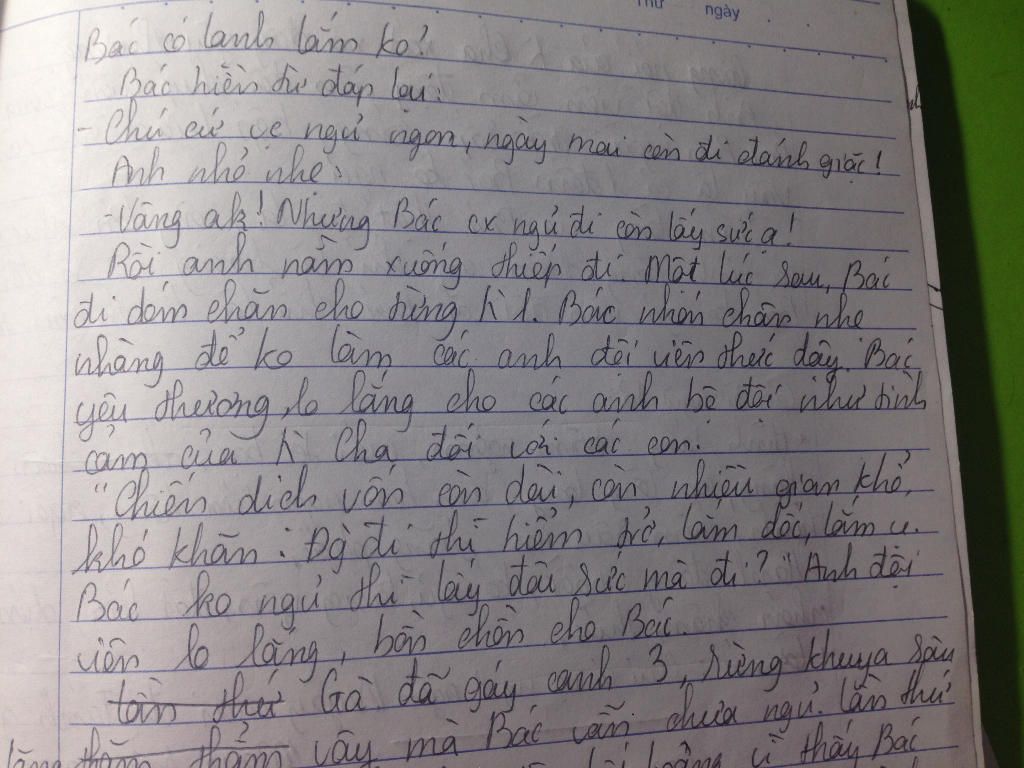 Thứ ngày
Bác có lạnh lắm ko?
Bác hiền từ đáp lại:
- Chú cứ vc ngủ ngon, ngày mai còn đi đánh giặc!
Anh nhỏ nhẹ:
- Vâng ak! Nhưng Bác cx ngủ đi còn lấy sức ạ!
Rồi anh nằm xuống thiếp đi. Một lúc sau, Bác
đi dém chăn cho từng 1. Bác nhón chân nhẹ
nhàng để ko làm các anh đội viên thức dậy. Bác
yêu thương, lo lắng cho các anh bộ đội như tình
cảm của Cha đối với các con.
"Chiến dịch vốn còn dài, còn nhiều gian khổ,
khó khăn. Đg đi thì hiểm trở, lắm dốc, lắm ụ.
Bác ko ngủ thì lấy đâu sức mà đi?" Anh đội
viên lo lắng, bồn chồn cho Bác.
lần thứ Gà đã gáy canh 3, rừng khuya sâu
lắng thăm thẳm vậy mà Bác vẫn chưa ngủ. Lần thứ
vì thấy Bác